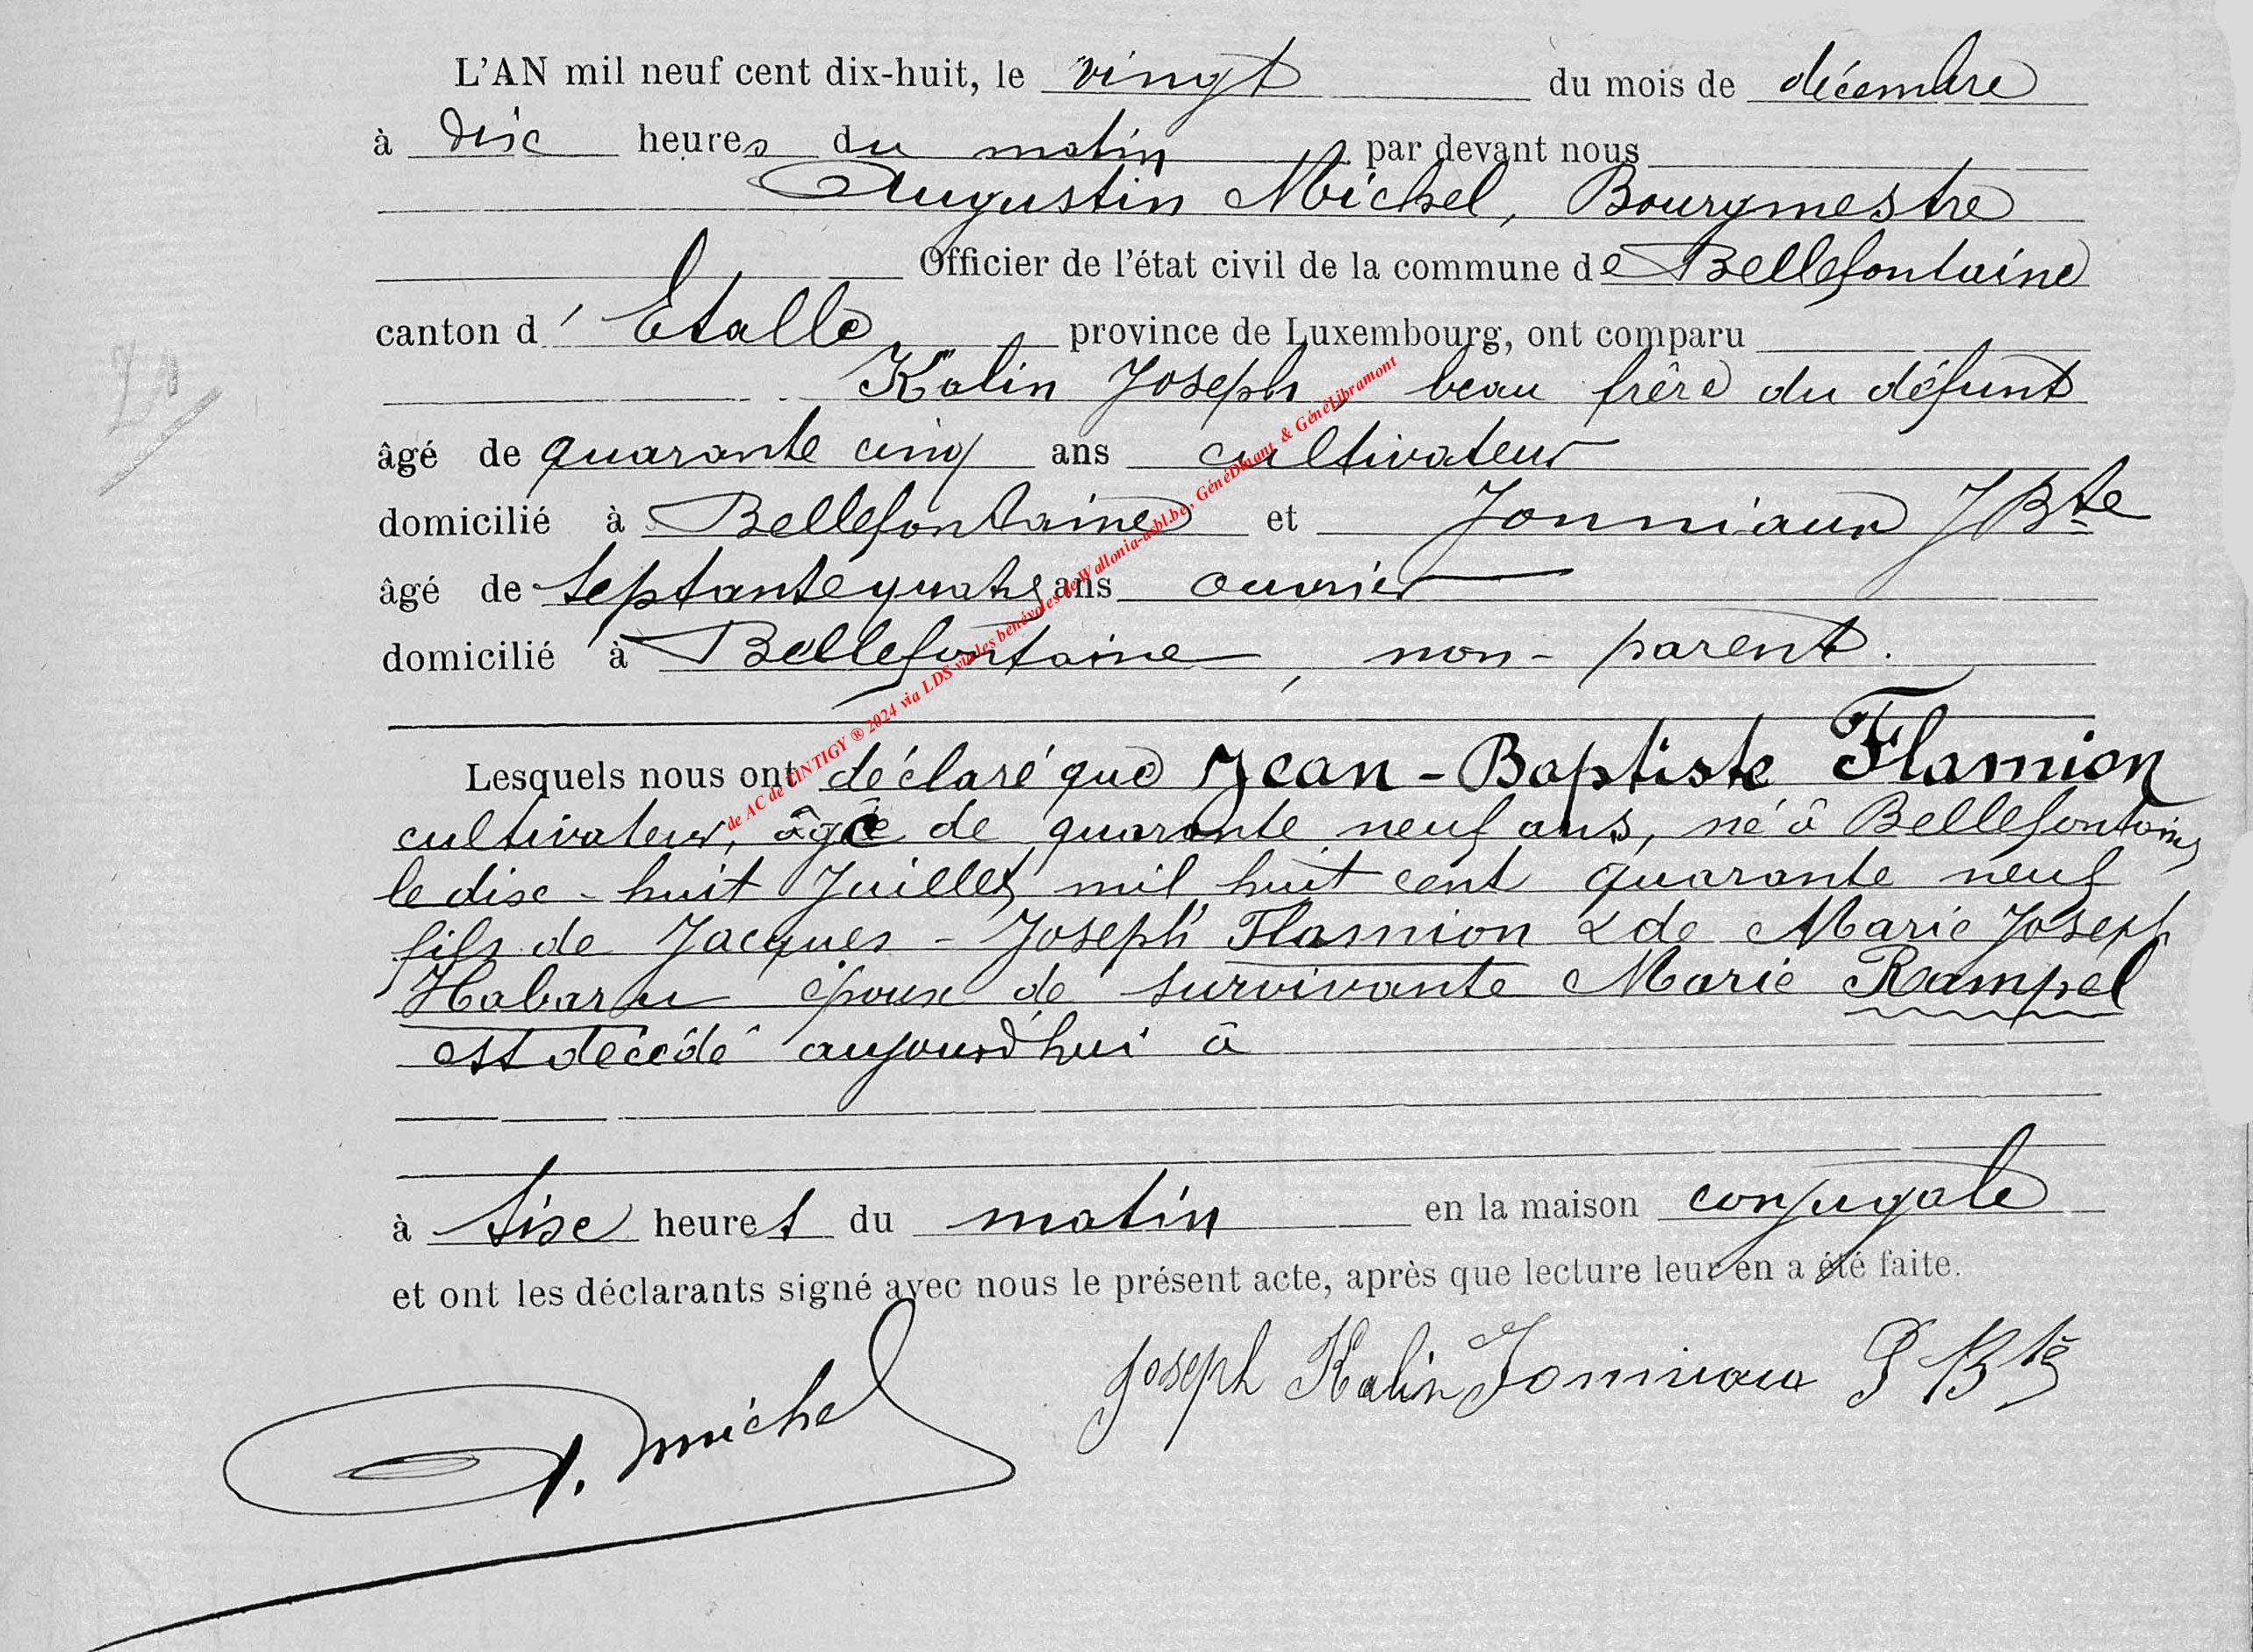 L'AN mil neuf cent dix-huit, le vingt du mois de décembre
à dix heures du matin par devant nous
Augustin Michel, Bourgmestre
Officier de l'état civil de la commune de Bellefontaine
canton d' Etalle province de Luxembourg, ont comparu
Kalin Joseph, beau frère du défunt
âgé de quarante cinq ans cultivateur
domicilié à Bellefontaine et Jonniaux J Bte
âgé de septante quatre ans ouvrier
domicilié à Bellefontaine, non-parent.
Lesquels nous ont déclaré que Jean-Baptiste Flamion
cultivateur, âgé de quarante neuf ans, né à Bellefontaine
le dix-huit Juillet mil huit cent quarante neuf
fils de Jacques-Joseph Flamion & de Marie Joseph
Habaru époux de survivante Marie Rampel
est décédé aujourd'hui à
à six heures du matin en la maison conjugale
et ont les déclarants signé avec nous le présent acte, après que lecture leur en a été faite.
Joseph Kalin Jonniaux J Bte
A. Michel
20
de AC de TINTIGY ® 2024 via LDS via les bénévoles de Wallonia-asbl.be, GénéDinant & GénéLibramont